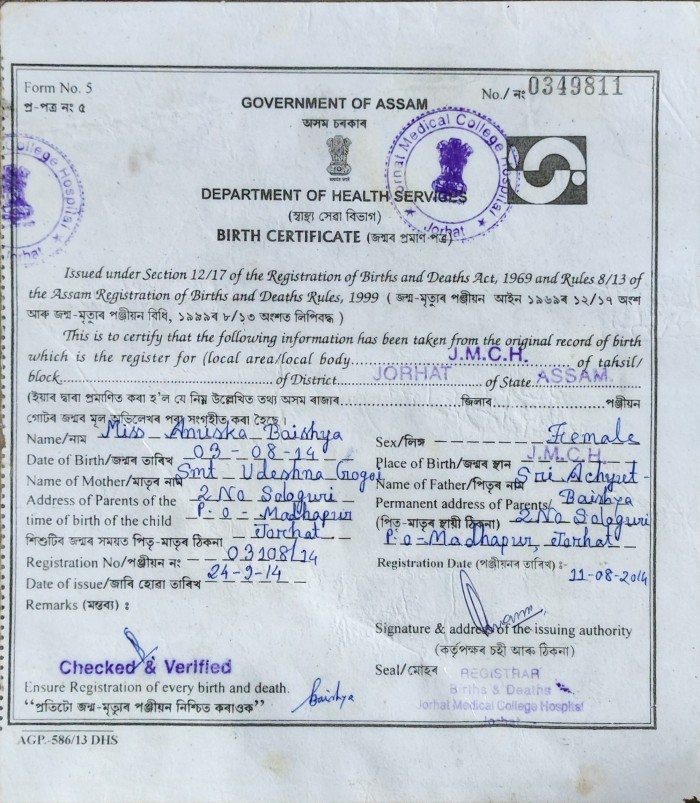 Form No. 5
No./ নং 0349811
প্ৰ-পত্ৰ নং ৫
GOVERNMENT OF ASSAM
অসম চৰকাৰ
Jorhat Medical College Hospital
Jorhat
DEPARTMENT OF HEALTH SERVICES
(স্বাস্থ্য সেৱা বিভাগ)
BIRTH CERTIFICATE (জন্মৰ প্ৰমাণ-পত্ৰ)
Issued under Section 12/17 of the Registration of Births and Deaths Act, 1969 and Rules 8/13 of
the Assam Registration of Births and Deaths Rules, 1999 ( জন্ম-মৃত্যুৰ পঞ্জীয়ন আইন ১৯৬৯ৰ ১২/১৭ অংশ
আৰু জন্ম-মৃত্যুৰ পঞ্জীয়ন বিধি, ১৯৯৯ৰ ৮/১৩ অংশত লিপিবদ্ধ )
This is to certify that the following information has been taken from the original record of birth
which is the register for (local area/local body J.M.C.H. of tahsil/
block of District JORHAT of State ASSAM
(ইয়াৰ দ্বাৰা প্ৰমাণিত কৰা হ'ল যে নিম্ন উল্লেখিত তথ্য অসম ৰাজ্যৰ জিলাৰ পঞ্জীয়ন
গোটৰ জন্মৰ মূল অভিলেখৰ পৰা সংগৃহীত কৰা হৈছে।
Name/নাম Miss Aniska Baishya
Sex/লিঙ্গ Female
Date of Birth/জন্মৰ তাৰিখ 03-08-14
Place of Birth/জন্মৰ স্থান J.M.C.H.
Name of Mother/মাতৃৰ নাম Smt Udeshna Gogoi
Name of Father/পিতৃৰ নাম Sri Achyut-
Baishya
Address of Parents of the 2 No Solaguri
time of birth of the child P.O-Madhapur
শিশুটিৰ জন্মৰ সময়ত পিতৃ-মাতৃৰ ঠিকনা Jorhat
Permanent address of Parents/
(পিতৃ-মাতৃৰ স্থায়ী ঠিকনা) 2 No Solaguri
P.O-Madhapur, Jorhat
Registration No/পঞ্জীয়ন নং 03108/14
Registration Date (পঞ্জীয়নৰ তাৰিখ) :- 11-08-2014
Date of issue/জাৰি হোৱা তাৰিখ 24-9-14
Remarks (মন্তব্য) :
Signature & address of the issuing authority
(কৰ্তৃপক্ষৰ চহী আৰু ঠিকনা)
Checked & Verified
Seal/মোহৰ REGISTRAR
Births & Deaths
Jorhat Medical College Hospital
Jorhat
Ensure Registration of every birth and death.
"প্ৰতিটো জন্ম-মৃত্যুৰ পঞ্জীয়ন নিশ্চিত কৰাওক"
Baishya
AGP.-586/13 DHS